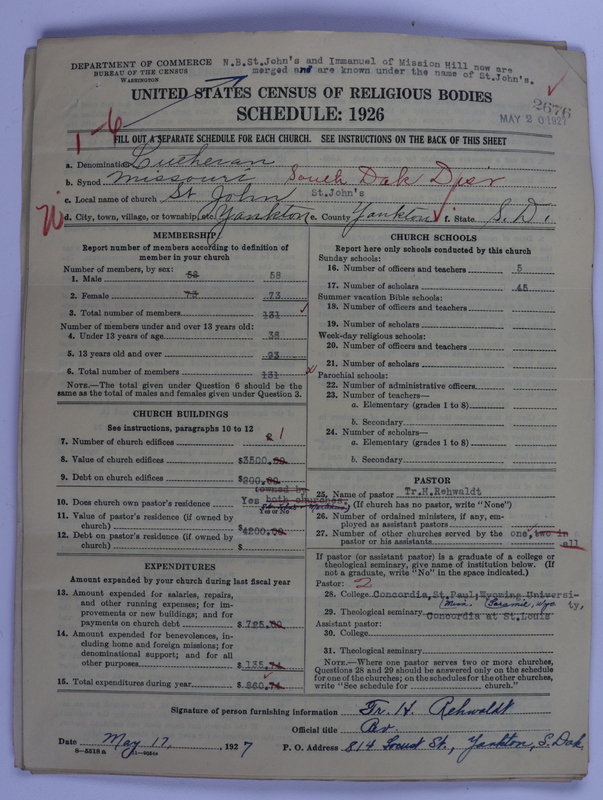 DEPARTMENT OF COMMERCE
BUREAU OF THE CENSUS
WASHINGTON
N.B.St.John's and Immanuel of Mission Hill now are
merged and are known under the name of St.John's.
UNITED STATES CENSUS OF RELIGIOUS BODIES
SCHEDULE: 1926
2676
MAY 20 1927
1-6
FILL OUT A SEPARATE SCHEDULE FOR EACH CHURCH. SEE INSTRUCTIONS ON THE BACK OF THIS SHEET
a. Denomination Lutheran
b. Synod Missouri South Dak Distr
c. Local name of church St John St.John's
d. City, town, village, or township, etc. Yankton e. County Yankton f. State S. D.
MEMBERSHIP
Report number of members according to definition of
member in your church
Number of members, by sex:
1. Male 58 58
2. Female 73 73
3. Total number of members 131
Number of members under and over 13 years old:
4. Under 13 years of age 38
5. 13 years old and over 93
6. Total number of members 131
NOTE.—The total given under Question 6 should be the
same as the total of males and females given under Question 3.
CHURCH BUILDINGS
See instructions, paragraphs 10 to 12
7. Number of church edifices 2 1
8. Value of church edifices $3500.00
9. Debt on church edifices $200.00
(owned by
10. Does church own pastor's residence Yes both churches.
Yes or No
11. Value of pastor's residence (if owned by
church) $4200.00
12. Debt on pastor's residence (if owned by
church) $
EXPENDITURES
Amount expended by your church during last fiscal year
13. Amount expended for salaries, repairs,
and other running expenses; for im-
provements or new buildings; and for
payments on church debt $725.00
14. Amount expended for benevolences, in-
cluding home and foreign missions; for
denominational support; and for all
other purposes $135.74
15. Total expenditures during year $860.74
CHURCH SCHOOLS
Report here only schools conducted by this church
Sunday schools:
16. Number of officers and teachers 5
17. Number of scholars 45
Summer vacation Bible schools:
18. Number of officers and teachers
19. Number of scholars
Week-day religious schools:
20. Number of officers and teachers
21. Number of scholars
Parochial schools:
22. Number of administrative officers
23. Number of teachers—
a. Elementary (grades 1 to 8)
b. Secondary
24. Number of scholars—
a. Elementary (grades 1 to 8)
b. Secondary
PASTOR
25. Name of pastor Tr.H.Rehwaldt
(If church has no pastor, write "None")
26. Number of ordained ministers, if any, em-
ployed as assistant pastors
27. Number of other churches served by the one, two in
pastor or his assistants all
If pastor (or assistant pastor) is a graduate of a college or
theological seminary, give name of institution below. (If
not a graduate, write "No" in the space indicated.)
Pastor: 2
28. College Concordia,St.Paul;Wyoming Universi-
(Minn. Laramie, Wyo ty,
29. Theological seminary Concordia at St.Louis
Assistant pastor:
30. College
31. Theological seminary
NOTE.—Where one pastor serves two or more churches,
Questions 28 and 29 should be answered only on the schedule
for one of the churches; on the schedules for the other churches,
write "See schedule for church."
Signature of person furnishing information Tr. H. Rehwaldt
Official title Rev.
Date May 17, 1927 P. O. Address 814 Locust St., Yankton, S. Dak.
8—5518 a